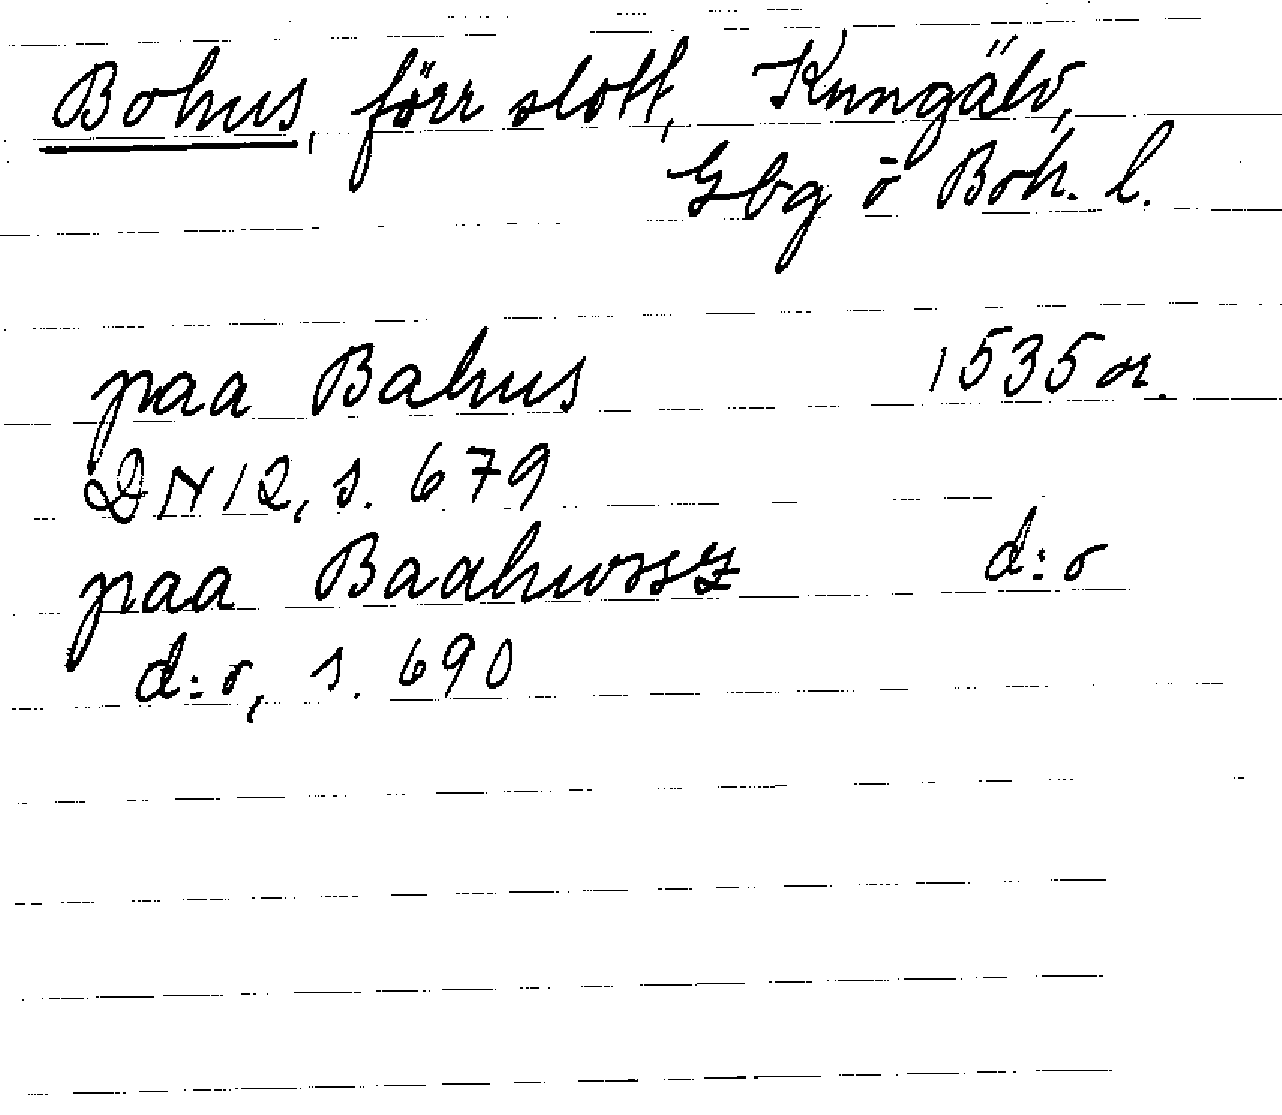 Bohus, förr slott, Kungälv,
Gbg o Boh. l.
paa Bahus 1535 or.
DN 12, s. 679
paa Baahwssz d:o
d:o, s. 690